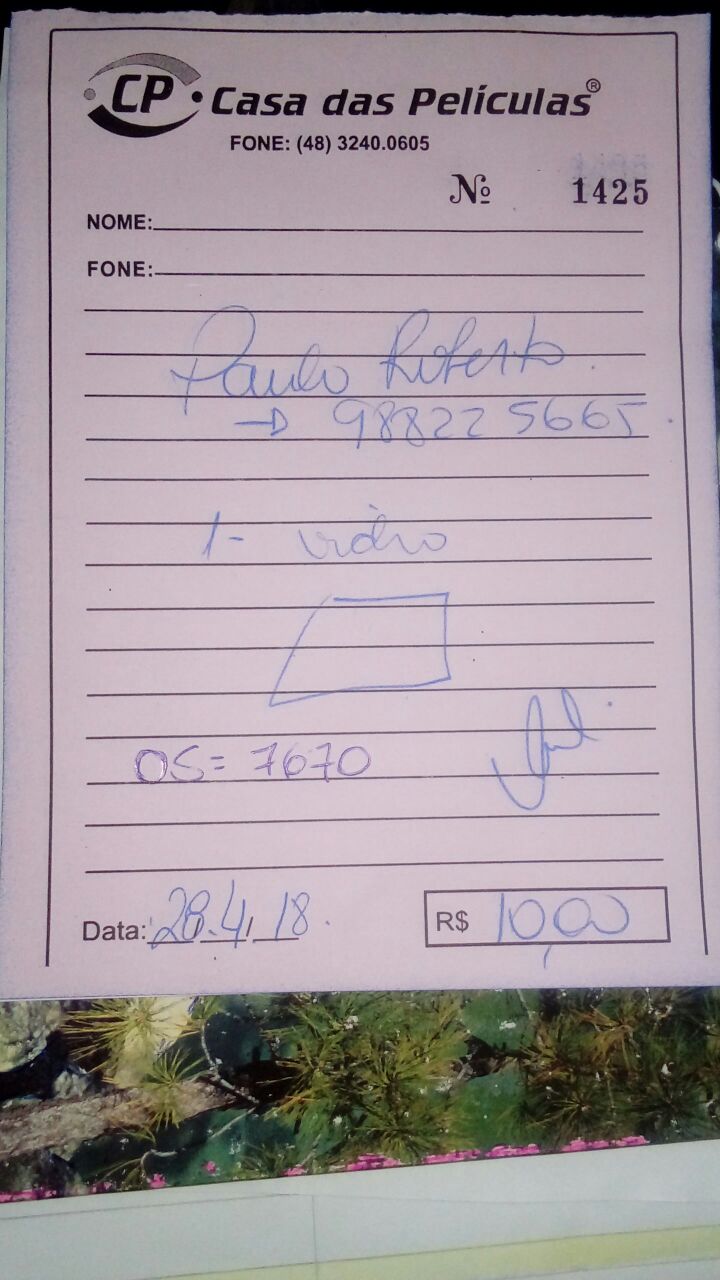 CP Casa das Películas®
FONE: (48) 3240.0605
Nº 1425
NOME:
FONE:
Paulo Roberto.
→ 98822 5665.
1- vidro
OS= 7670
Data: 28.4.18.
R$ 10,00